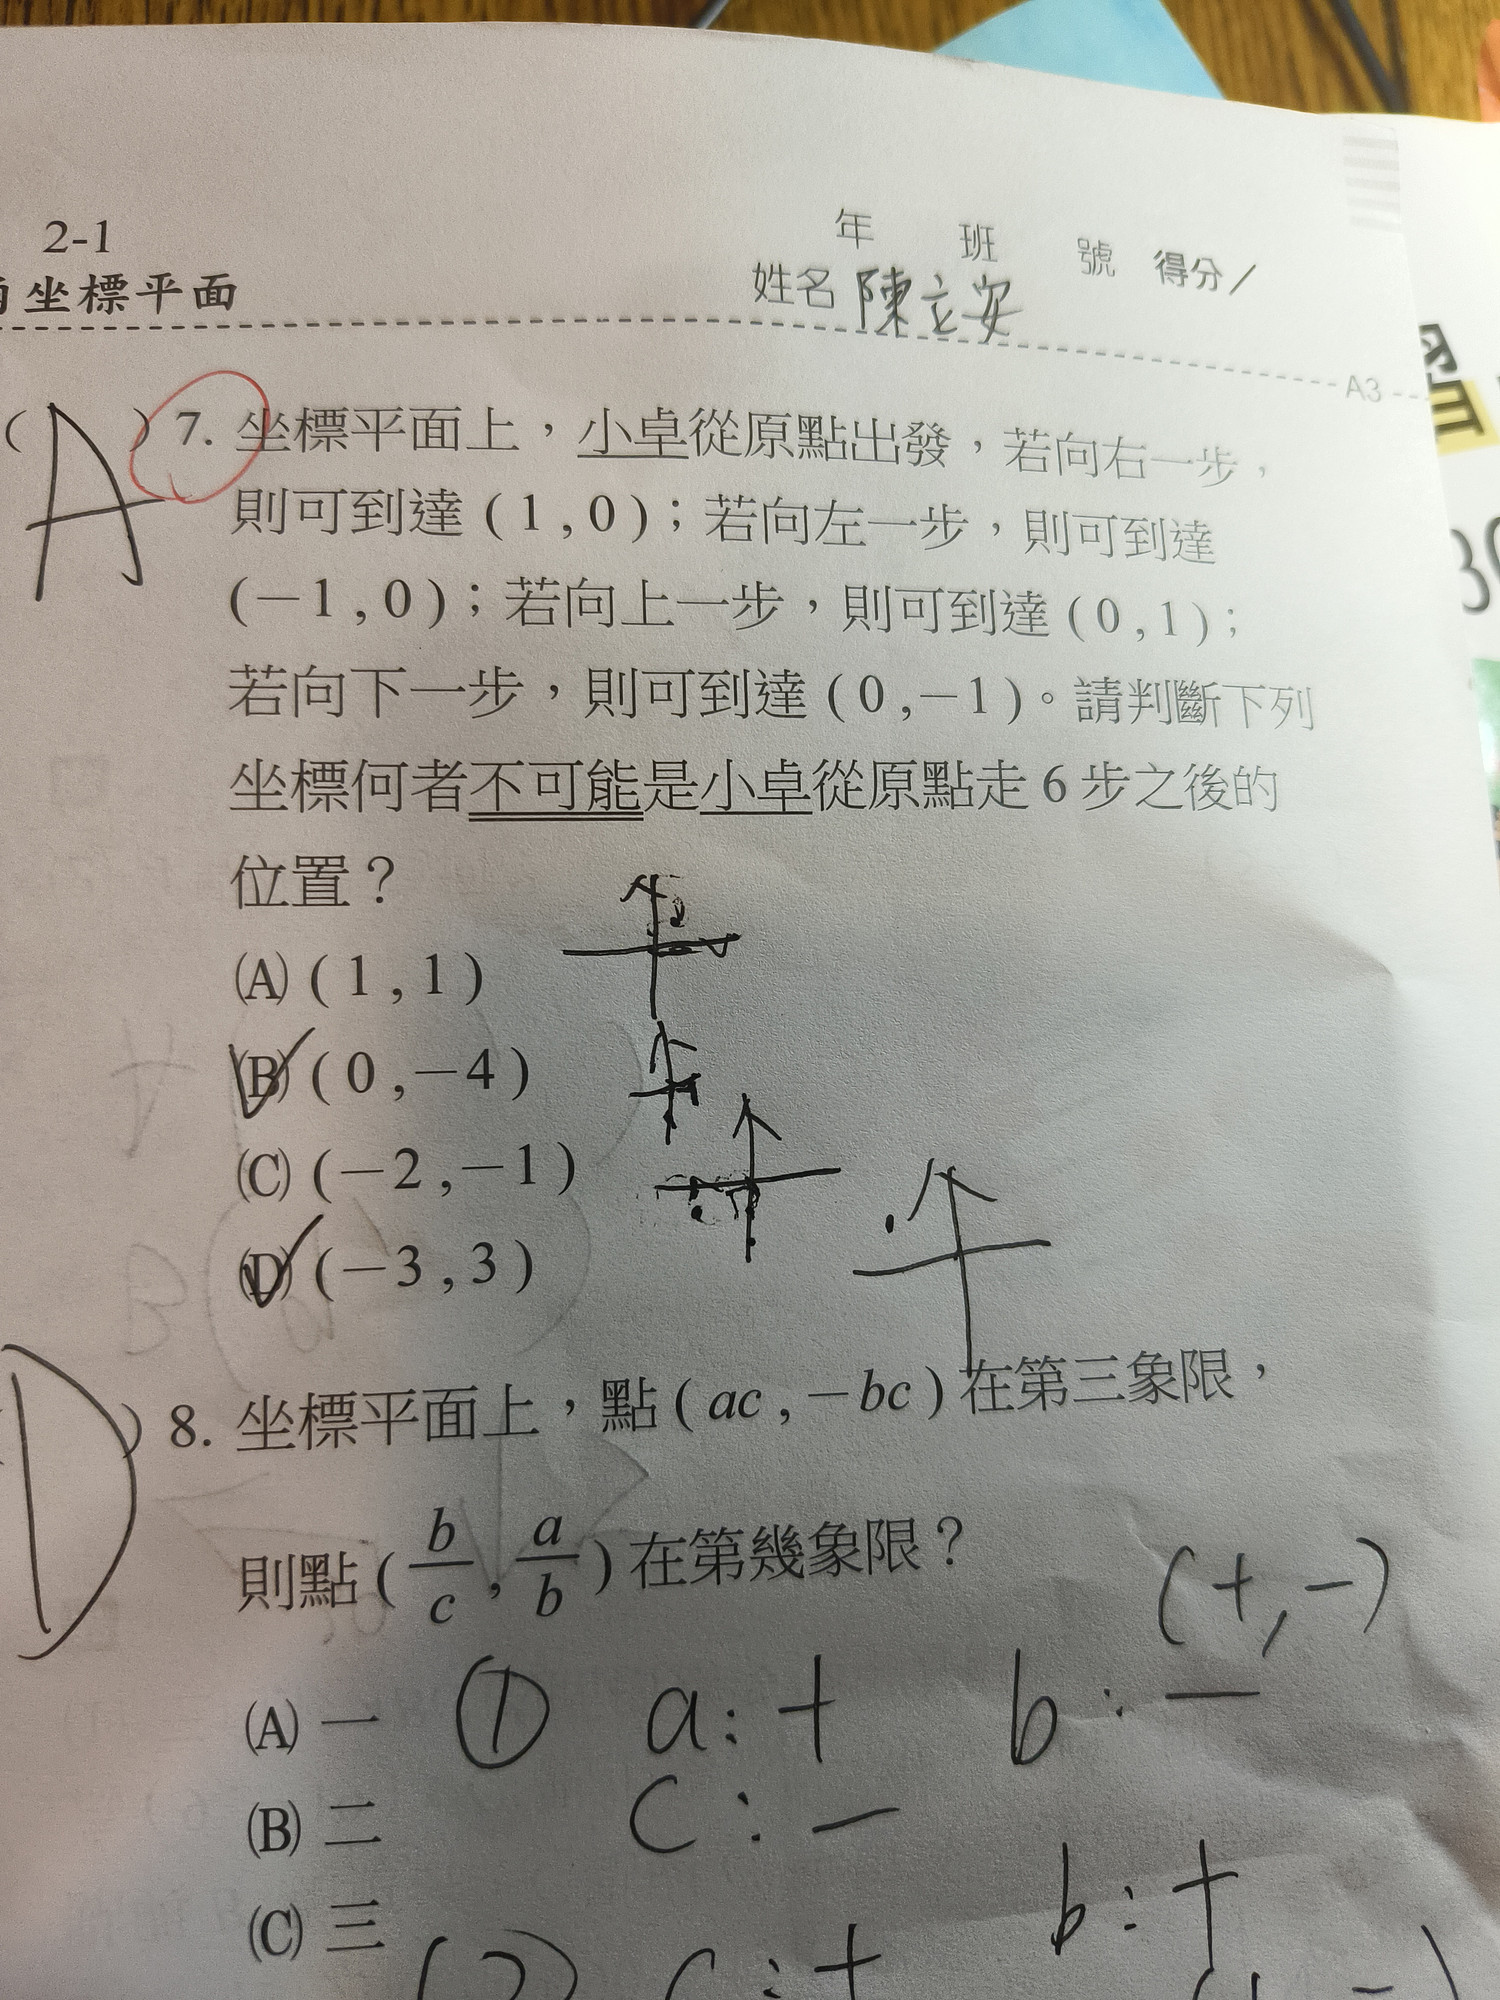 2-1
坐標平面
年 班 號 得分/
姓名 陳立安
A3
習
(A) 7. 坐標平面上，小卓從原點出發，若向右一步，
則可到達(1,0)；若向左一步，則可到達
(−1,0)；若向上一步，則可到達(0,1)；
若向下一步，則可到達(0,−1)。請判斷下列
坐標何者不可能是小卓從原點走6步之後的
位置？
(A)(1,1)
(B)(0,−4)
(C)(−2,−1)
(D)(−3,3)
D)8. 坐標平面上，點(ac,−bc)在第三象限，
則點(b/c,a/b)在第幾象限？
(+,−)
(A)一 ① a:+ b:−
(B)二 c:−
b:+
(C)三
(2) c:+